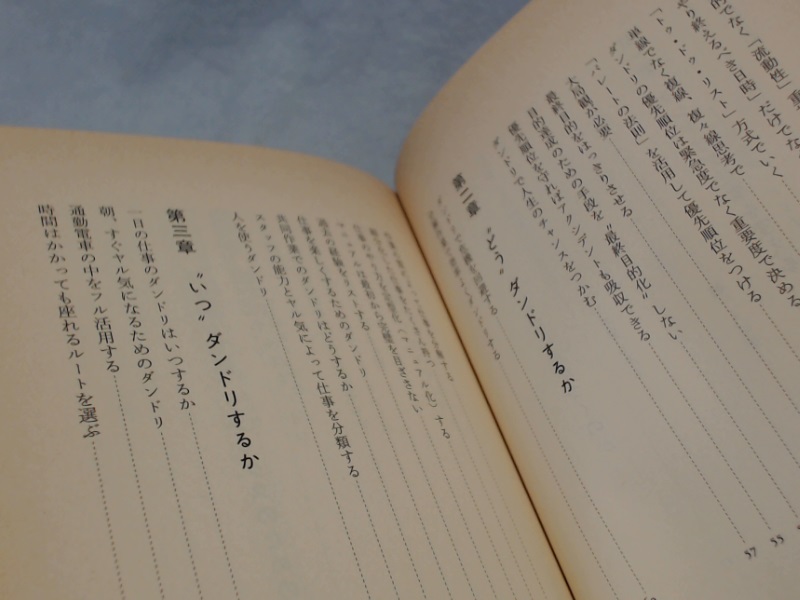 的でなく「流動性」重
やり終えるべき日時」だけでな
「トゥ・ドゥ・リスト」方式でいく
単線でなく複線、複々線思考で
ダンドリの優先順位は緊急度でなく重要度で決める
「パレートの法則」を活用して優先順位をつける
大局観が必要
最終目的をはっきりさせる
目的達成のための手段を“最終目的化”しない
優先順位を守ればアクシデントも吸収できる
ダンドリで人生のチャンスをつかむ
57
55
第二章 “どう”ダンドリするか
過去の経験をリストする
仕事を楽しくするためのダンドリ
共同作業でのダンドリはどうするか
スタッフの能力とヤル気によって仕事を分類する
人を使うダンドリ
第三章 “いつ”ダンドリするか
一日の仕事のダンドリはいつするか
朝、すぐヤル気になるためのダンドリ
通勤電車の中をフル活用する
時間はかかっても座れるルートを選ぶ